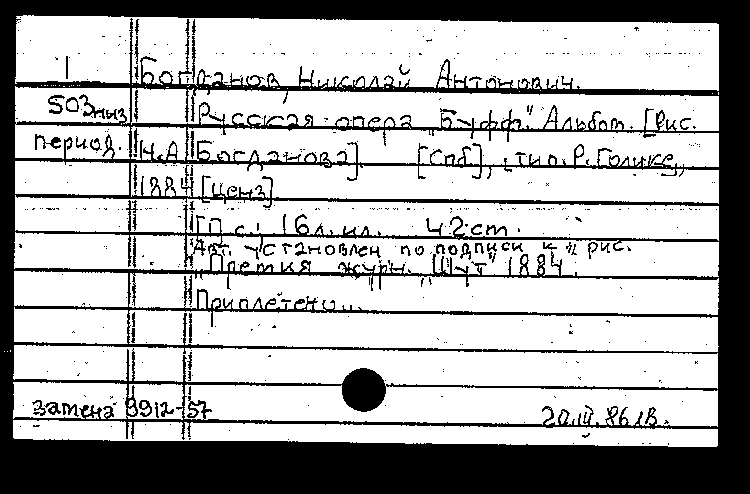 1 Богданов, Николай Антонович.
503низ Русская опера „Буфф". Альбом. [Рис.
период. Н.А. Богданова]. [Спб], тип. Р. Голике,
1884 [ценз]
[1] с., 16 л. ил. 42 cm.
Авт. установлен по подписи к рис.
журн. „Шут" 1884.
Приплетено...
замена 9912-57 20.III.86